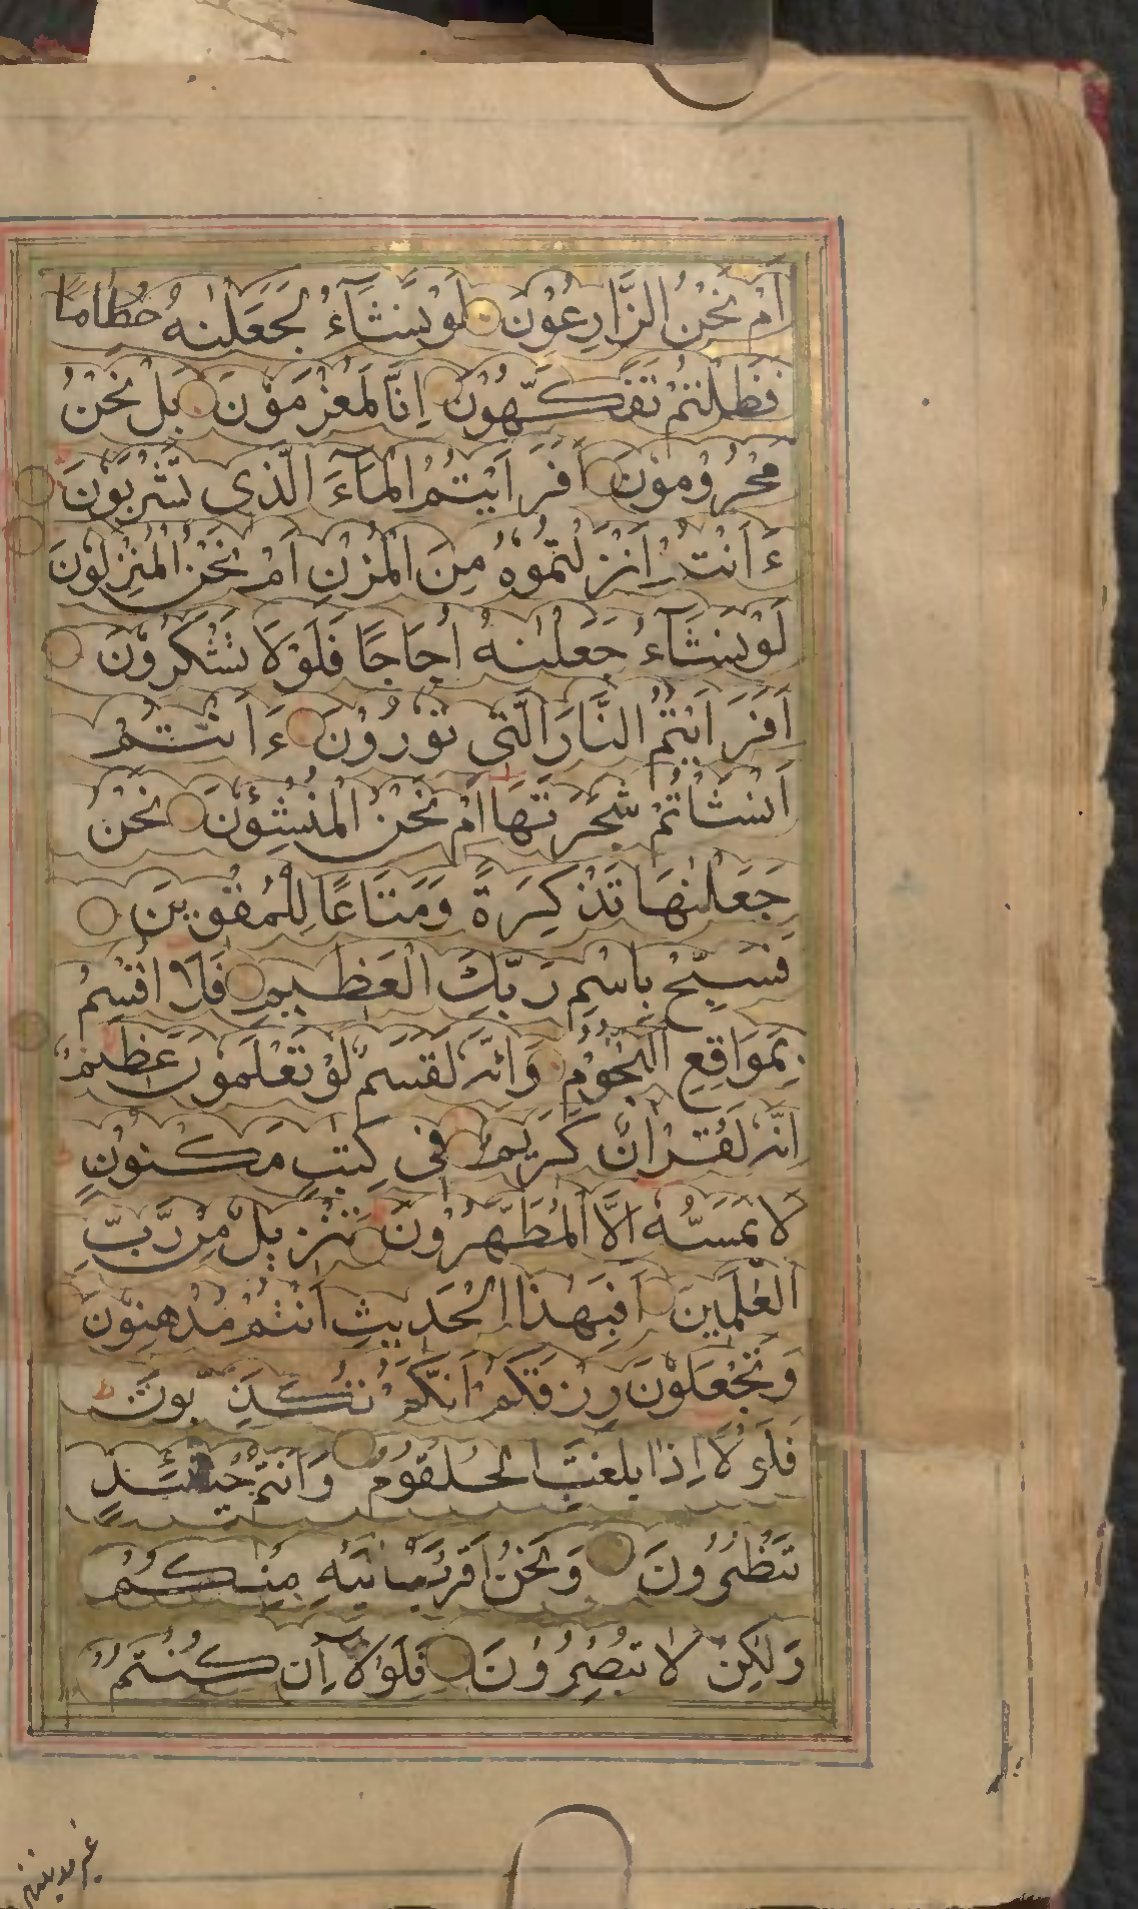 اَمْ نَحْنُ الزَّارِعُوْنَ لَوْ نَشَآءُ لَجَعَلْنٰهُ حُطَامًا
فَظَلْتُمْ تَفَكَّهُوْنَ اِنَّا لَمُغْرَمُوْنَ بَلْ نَحْنُ
مَحْرُوْمُوْنَ اَفَرَاَيْتُمُ الْمَآءَ الَّذِى تَشْرَبُوْنَ
ءَاَنْتُمْ اَنْزَلْتُمُوْهُ مِنَ الْمُزْنِ اَمْ نَحْنُ الْمُنْزِلُوْنَ
لَوْ نَشَآءُ جَعَلْنٰهُ اُجَاجًا فَلَوْلَا تَشْكُرُوْنَ
اَفَرَاَيْتُمُ النَّارَ الَّتِى تُوْرُوْنَ ءَاَنْتُمْ
اَنْشَاْتُمْ شَجَرَتَهَا اَمْ نَحْنُ الْمُنْشِئُوْنَ نَحْنُ
جَعَلْنٰهَا تَذْكِرَةً وَمَتَاعًا لِلْمُقْوِيْنَ
فَسَبِّحْ بِاسْمِ رَبِّكَ الْعَظِيْمِ فَلَا اُقْسِمُ
بِمَوَاقِعِ النُّجُوْمِ وَاِنَّهٗ لَقَسَمٌ لَوْ تَعْلَمُوْنَ عَظِيْمٌ
اِنَّهٗ لَقُرْاٰنٌ كَرِيْمٌ فِى كِتٰبٍ مَكْنُوْنٍ
لَا يَمَسُّهٗ اِلَّا الْمُطَهَّرُوْنَ تَنْزِيْلٌ مِنْ رَبِّ
الْعٰلَمِيْنَ اَفَبِهٰذَا الْحَدِيْثِ اَنْتُمْ مُدْهِنُوْنَ
وَتَجْعَلُوْنَ رِزْقَكُمْ اَنَّكُمْ تُكَذِّبُوْنَ
فَلَوْلَا اِذَا بَلَغَتِ الْحُلْقُوْمَ وَاَنْتُمْ حِيْنَئِذٍ
تَنْظُرُوْنَ وَنَحْنُ اَقْرَبُ اِلَيْهِ مِنْكُمْ
وَلٰكِنْ لَا تُبْصِرُوْنَ فَلَوْلَا اِنْ كُنْتُمْ
غير مدينين